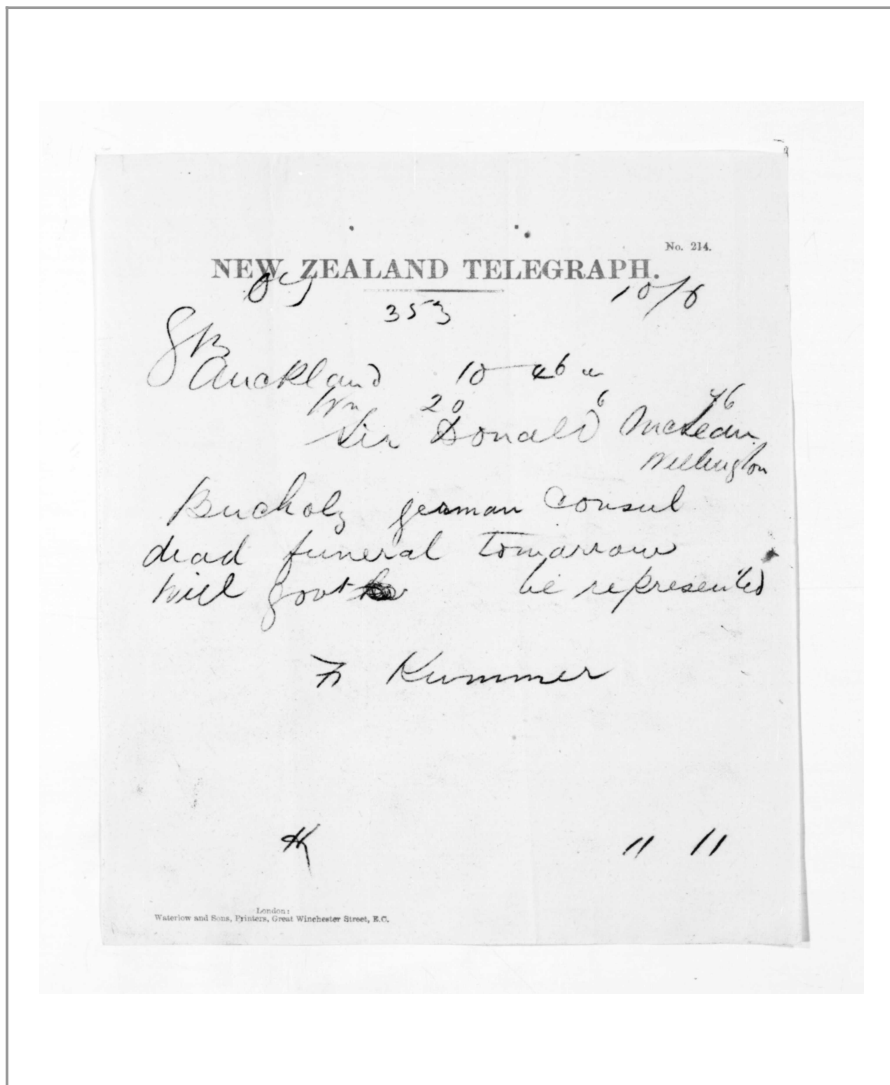 No. 214.
NEW ZEALAND TELEGRAPH.
353 10/6
Auckland 10 46 a
20 6 76
Sir Donald McLean
Wellington
Bucholz german Consul
dead funeral tomorrow
will govt be represented
F Kummer
11 11
London:
Waterlow and Sons, Printers, Great Winchester Street, E.C.